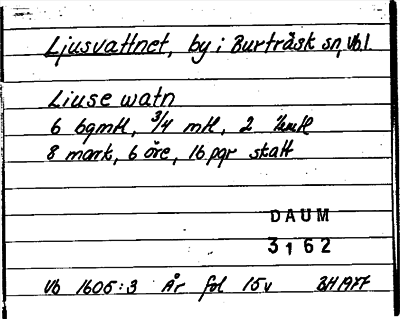 Ljusvattnet, by i Burträsk sn, Vb l.
Liuse watn
6 bgmtl, 3/4 mtl, 2
8 mark, 6 öre, 16 pgr skatt
DAUM
3162
Vb 1606:3 År fol 15v BH 1977